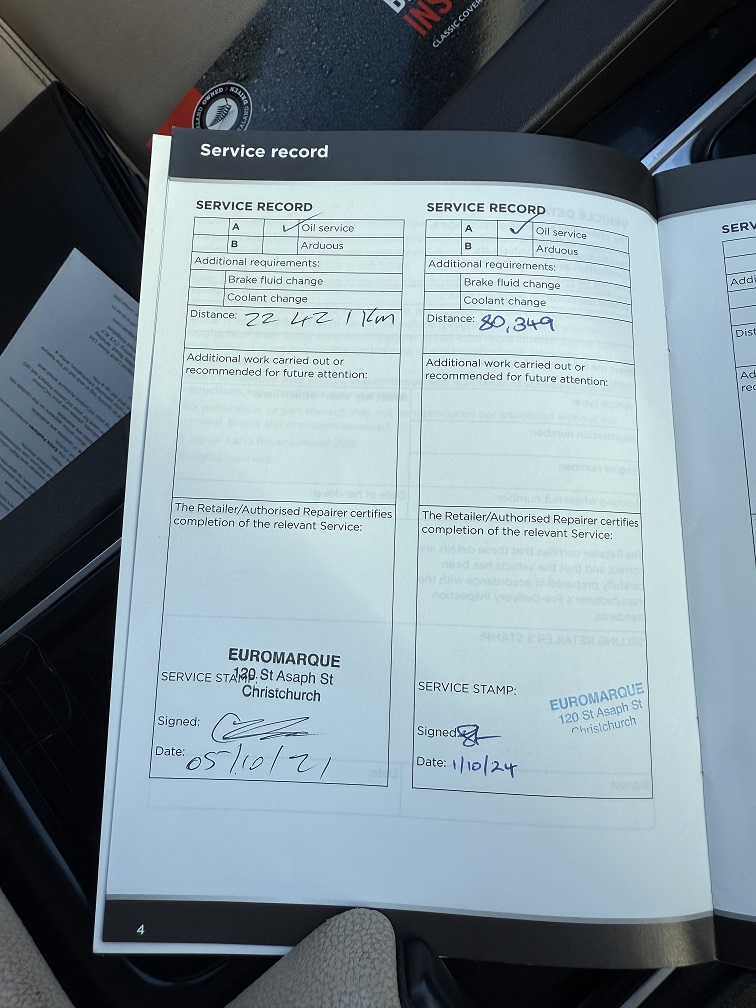 INS
CLASSIC COVER
OWNED
Service record
SERVICE RECORD
A ✓ Oil service
B Arduous
Additional requirements:
Brake fluid change
Coolant change
Distance: 22 421 Km
Additional work carried out or
recommended for future attention:
The Retailer/Authorised Repairer certifies
completion of the relevant Service:
EUROMARQUE
120 St Asaph St
Christchurch
SERVICE STAMP:
Signed:
Date: 05/10/21
SERVICE RECORD
A ✓ Oil service
B Arduous
Additional requirements:
Brake fluid change
Coolant change
Distance: 80,349
Additional work carried out or
recommended for future attention:
The Retailer/Authorised Repairer certifies
completion of the relevant Service:
SERVICE STAMP:
EUROMARQUE
120 St Asaph St
Christchurch
Signed:
Date: 1/10/24
4
SERV
Addi
Dist
Ad
rec